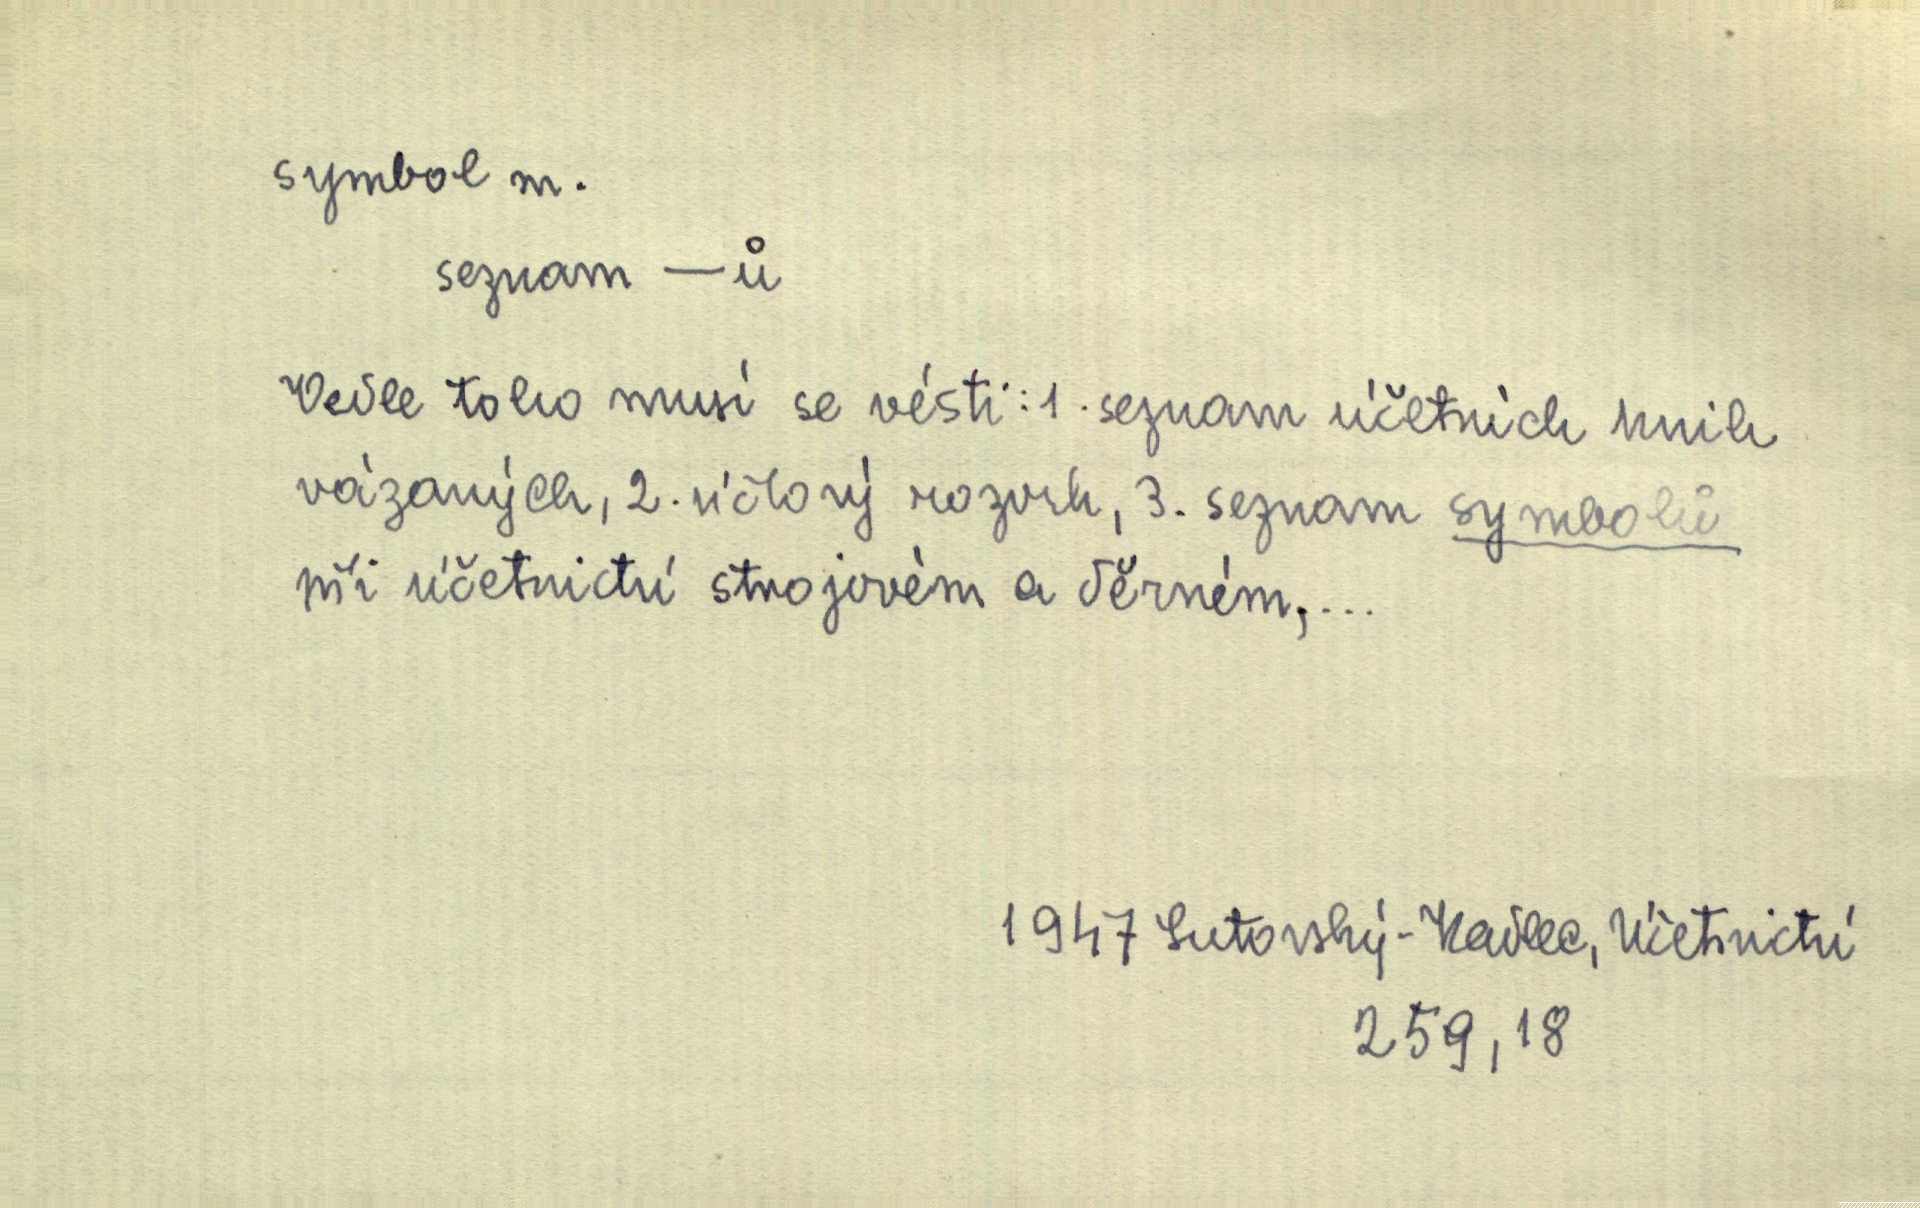 symbol m.
seznam —ů
Vedle toho musí se vésti: 1. seznam účetních knih
vázaných, 2. účtový rozvrh, 3. seznam symbolů
při účetnictví strojovém a děrném,...
1947 Lutovský-Kadlec, Účetnictví
259,18